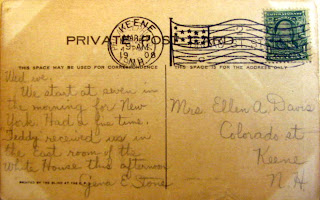 KEENE
MAR
9-AM
1908
N.H.
PRIVATE POST CARD
THIS SPACE MAY BE USED FOR CORRESPONDENCE
THIS SPACE IS FOR THE ADDRESS ONLY
Wed. eve.
We start at seven in
the morning for New
York. Had a fine time.
Teddy received us in
the East room of the
White House this afternoon
E. Stone
Mrs Ellen A. Davis
Colorado st
Keene
N. H